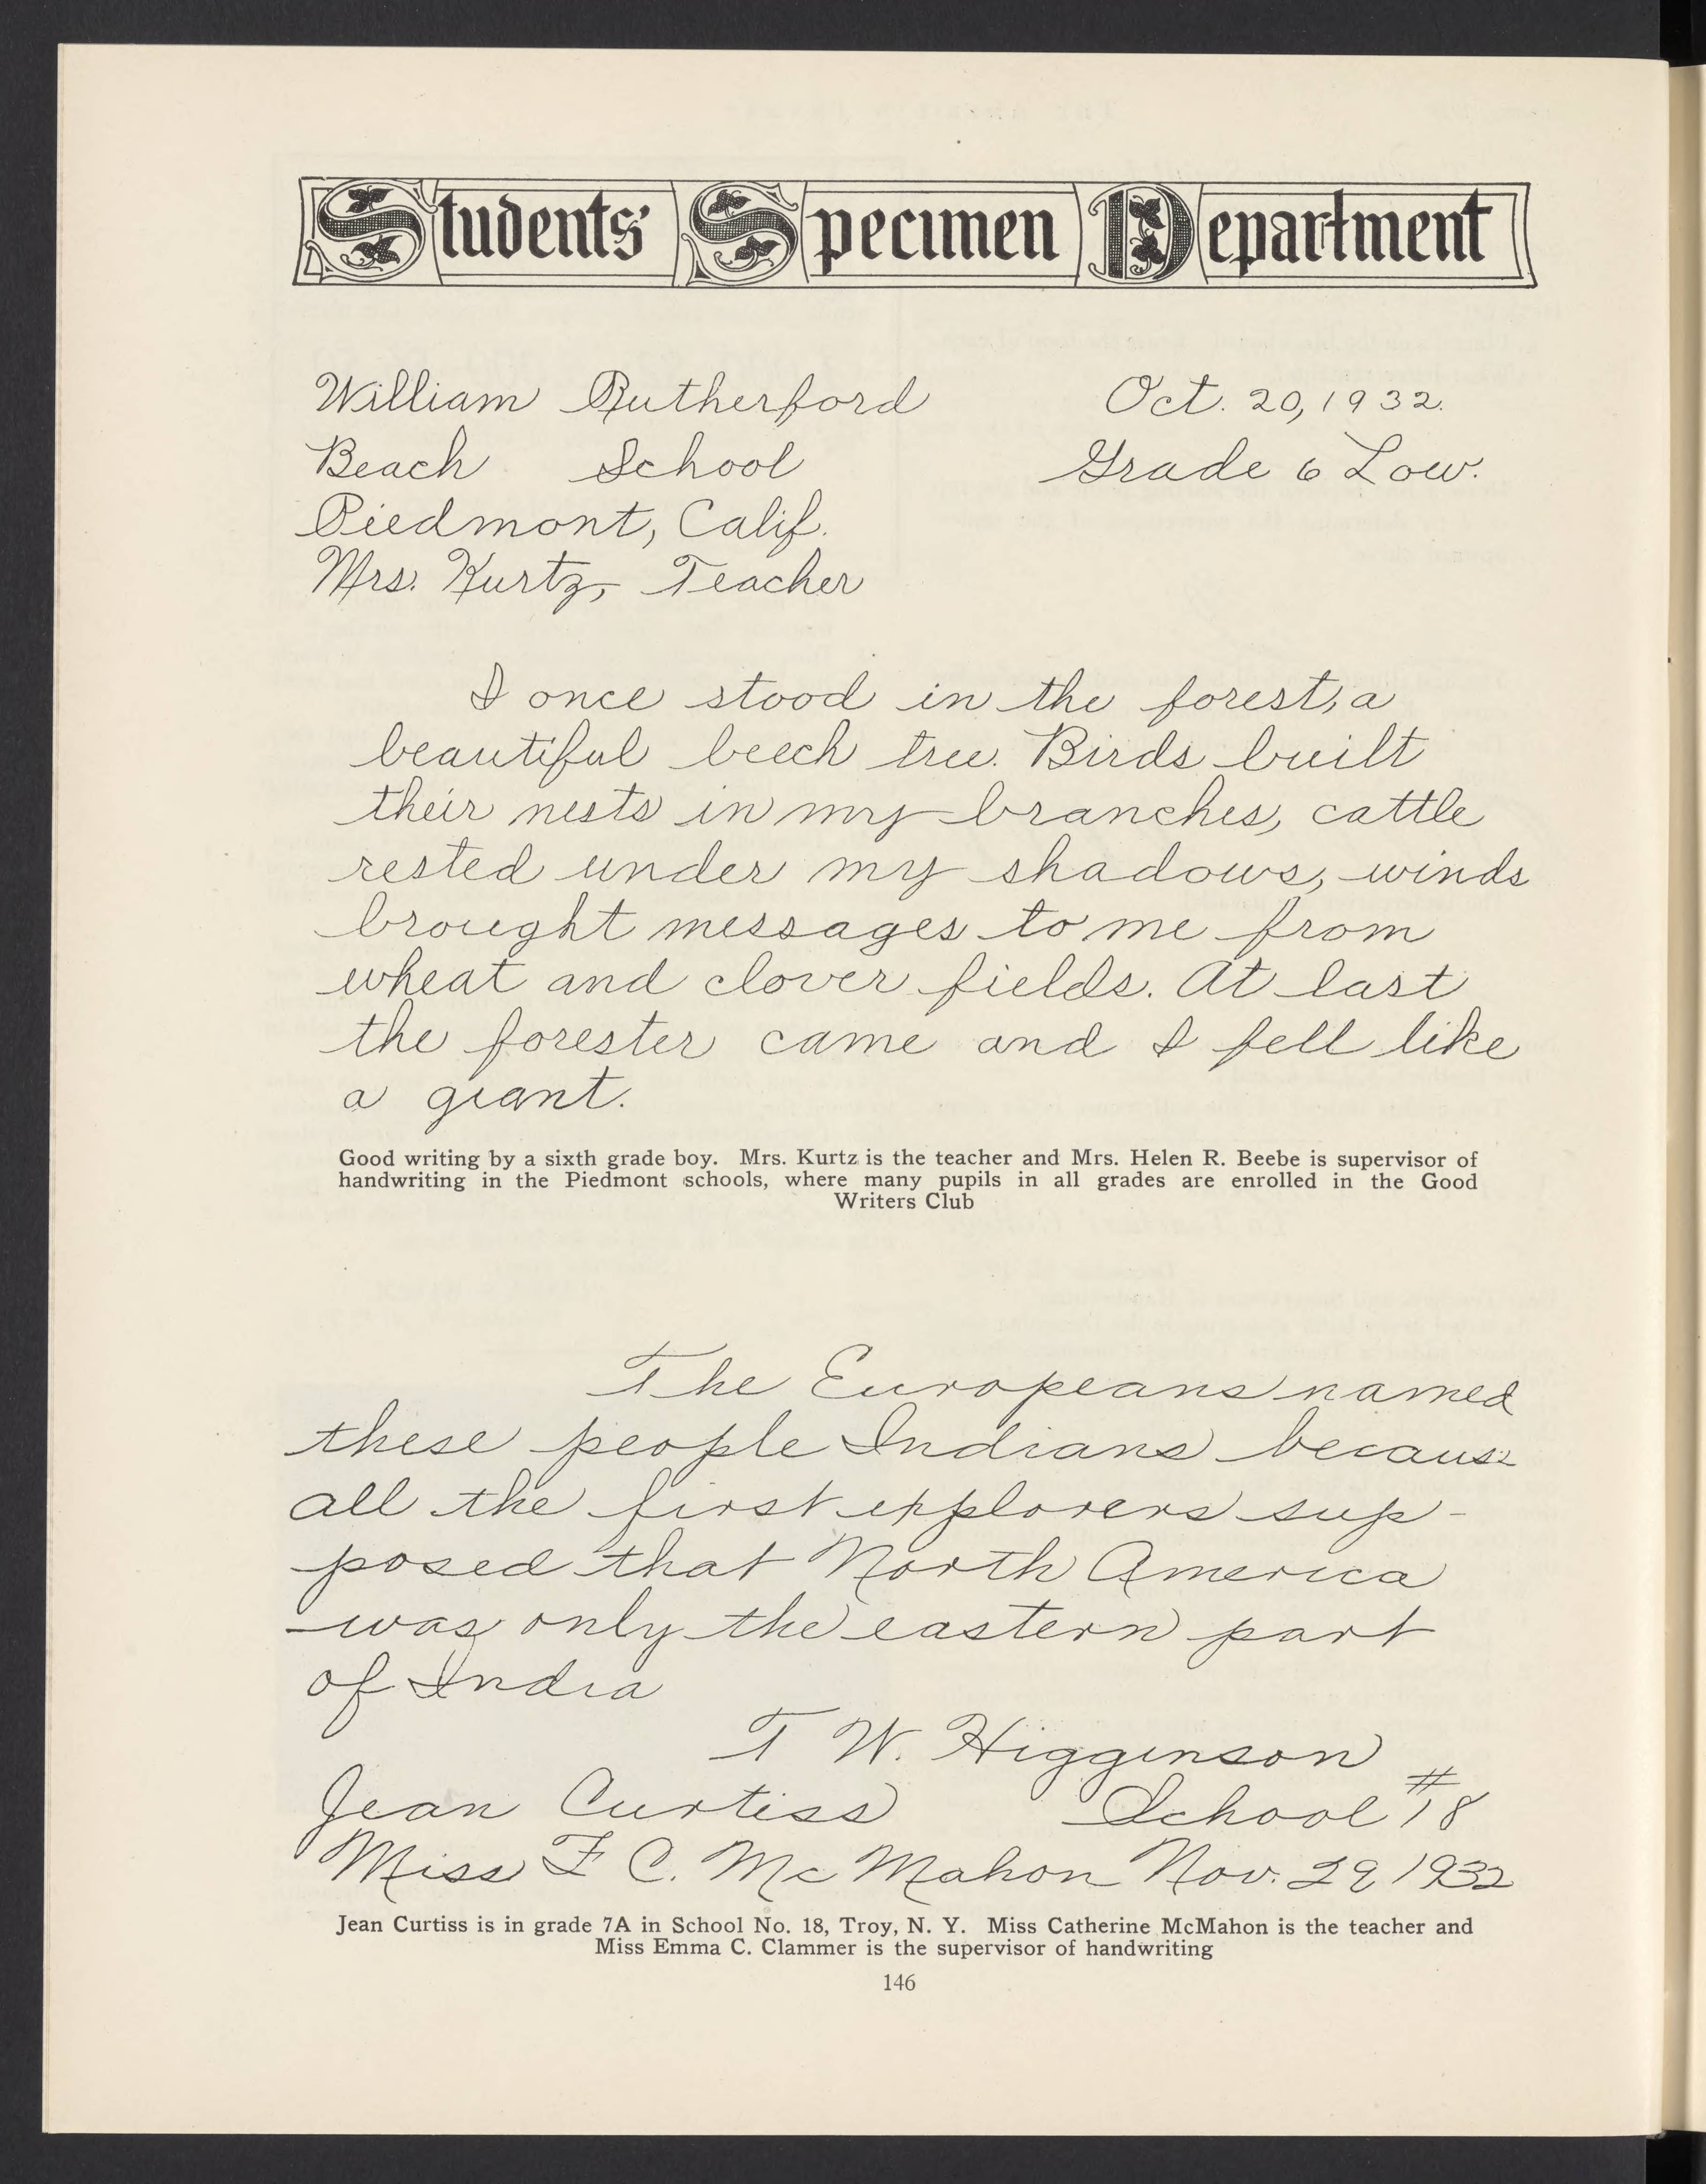 Students' Specimen Department
William Rutherford Oct. 20, 1932.
Beach School Grade 6 Low.
Piedmont, Calif.
Mrs. Kurtz, Teacher
I once stood in the forest, a
beautiful beech tree. Birds built
their nests in my branches, cattle
rested under my shadows, winds
brought messages to me from
wheat and clover fields. At last
the forester came and I fell like
a giant.
Good writing by a sixth grade boy. Mrs. Kurtz is the teacher and Mrs. Helen R. Beebe is supervisor of
handwriting in the Piedmont schools, where many pupils in all grades are enrolled in the Good
Writers Club
The Europeans named
these people Indians because
all the first explorers sup-
posed that North America
was only the eastern part
of India
T W. Higginson
Jean Curtiss School #18
Miss F C. McMahon Nov. 29 1932
Jean Curtiss is in grade 7A in School No. 18, Troy, N. Y. Miss Catherine McMahon is the teacher and
Miss Emma C. Clammer is the supervisor of handwriting
146